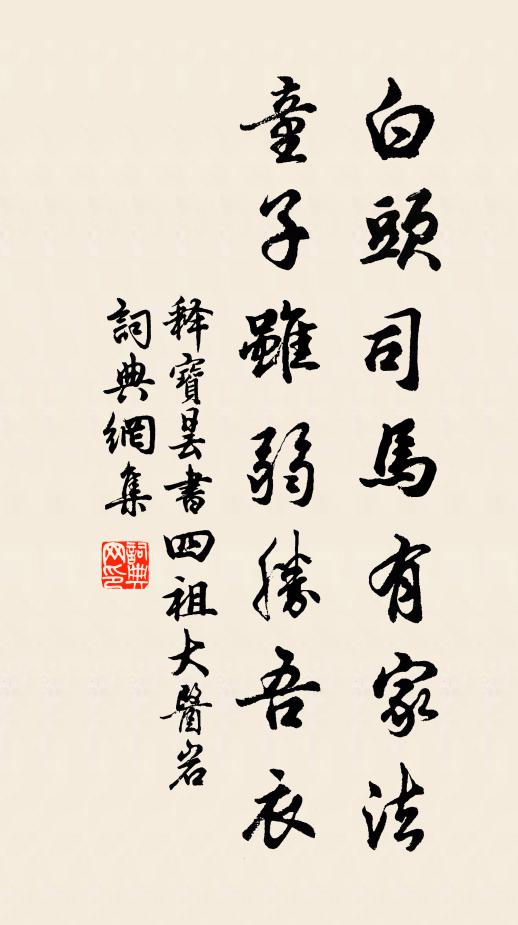 白頭司馬有家法
童子雖弱勝吾衣
释寶曇書四祖大醫岩
詞典網集
詞典网印